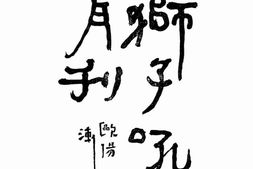 獅子吼
月刊
歐陽